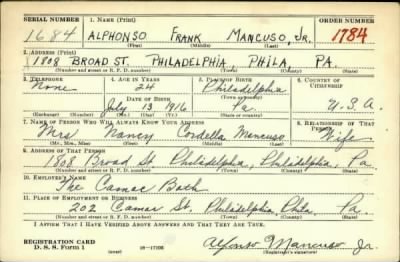 SERIAL NUMBER 1. NAME (Print) ORDER NUMBER
1684 ALPHONSO FRANK MANCUSO, JR. 1784
(First) (Middle) (Last)
2. ADDRESS (Print)
1808 BROAD ST. PHILADELPHIA, PHILA, PA.
(Number and street or R. F. D. number) (Town) (County) (State)
3. TELEPHONE 4. AGE IN YEARS 5. PLACE OF BIRTH 6. COUNTRY OF CITIZENSHIP
None 24 Philadelphia
DATE OF BIRTH (Town or county)
July 13 1916 Pa U.S.A.
(Exchange) (Number) (Mo.) (Day) (Yr.) (State or country)
7. NAME OF PERSON WHO WILL ALWAYS KNOW YOUR ADDRESS 8. RELATIONSHIP OF THAT PERSON
Mrs Nancy Cordella Mancuso Wife
(Mr., Mrs., Miss) (First) (Middle) (Last)
9. ADDRESS OF THAT PERSON
1808 Broad St Philadelphia, Philadelphia, Pa.
(Number and street or R. F. D. number) (Town) (County) (State)
10. EMPLOYER'S NAME
The Camac Bath
11. PLACE OF EMPLOYMENT OR BUSINESS
202 Camac St. Philadelphia, Phila. Pa.
(Number and street or R. F. D. number) (Town) (County) (State)
I AFFIRM THAT I HAVE VERIFIED ABOVE ANSWERS AND THAT THEY ARE TRUE.
REGISTRATION CARD
D. S. S. Form 1 (over) 16—17105 Alfonso Mancuso Jr
(Registrant's signature)